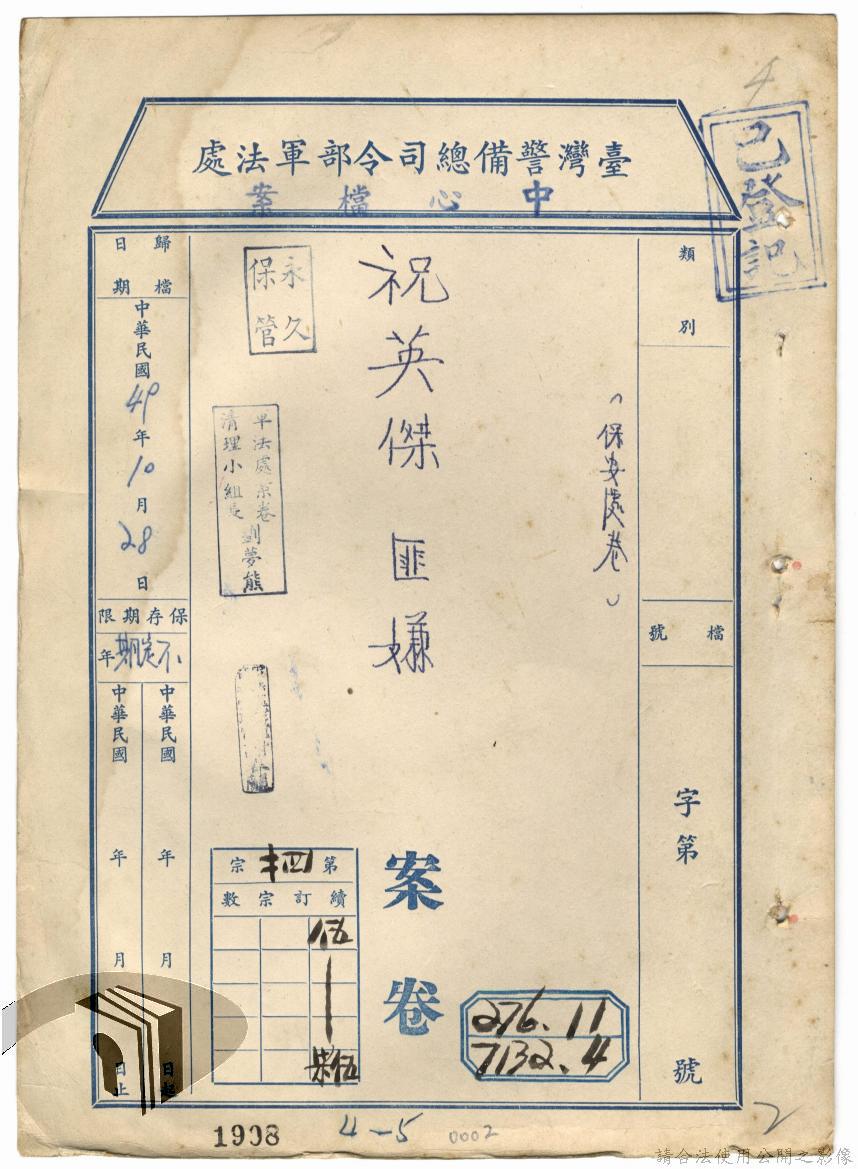 4
臺灣警備總司令部軍法處
中心檔案
已登記
類別
檔號
字第
號
(保安處卷)
祝英傑 匪嫌
案卷
276.11
7132.4
永久
保管
軍法處案卷
清理小組長
劉夢熊
第 四 宗
續訂宗數
伍
柒伍
歸檔
日期
中華民國49年10月28日
保存期限
不定期年
中華民國 年 月 日起
中華民國 年 月 日止
1908
4-5
0002
2
請合法使用公開之影像